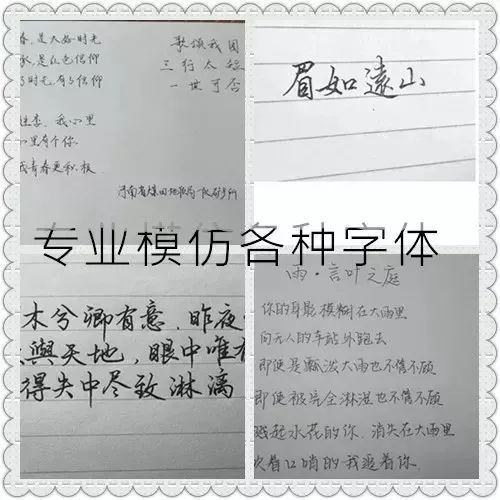 是大好时光
是红色信仰
时光,有了信仰
我心里
心里有个你
青春更积极
歌颂我国
三行太短
一世可否
河南省煤田地质局一队
眉如遠山
专业模仿各种字体
木兮卿有意,昨夜
與天地,眼中唯有
得失中尽致淋漓
雨·言叶之庭
你的身影模糊在大雨里
向无人的车站外跑去
即使是瓢泼大雨也不管不顾
即使被完全淋湿也不管不顾
溅起水花的你,消失在大雨里
吹着口哨的我追着你.